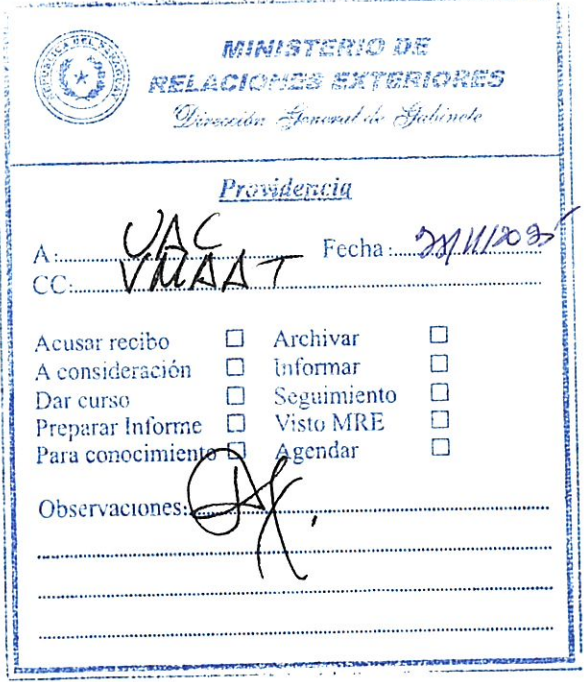 MINISTERIO DE
RELACIONES EXTERIORES
Dirección General de Gabinete
Providencia
A: UAC Fecha:
CC: VMAAT
Acusar recibo ☐ Archivar ☐
A consideración ☐ Informar ☐
Dar curso ☐ Seguimiento ☐
Preparar Informe ☐ Visto MRE ☐
Para conocimiento ☐ Agendar ☐
Observaciones: